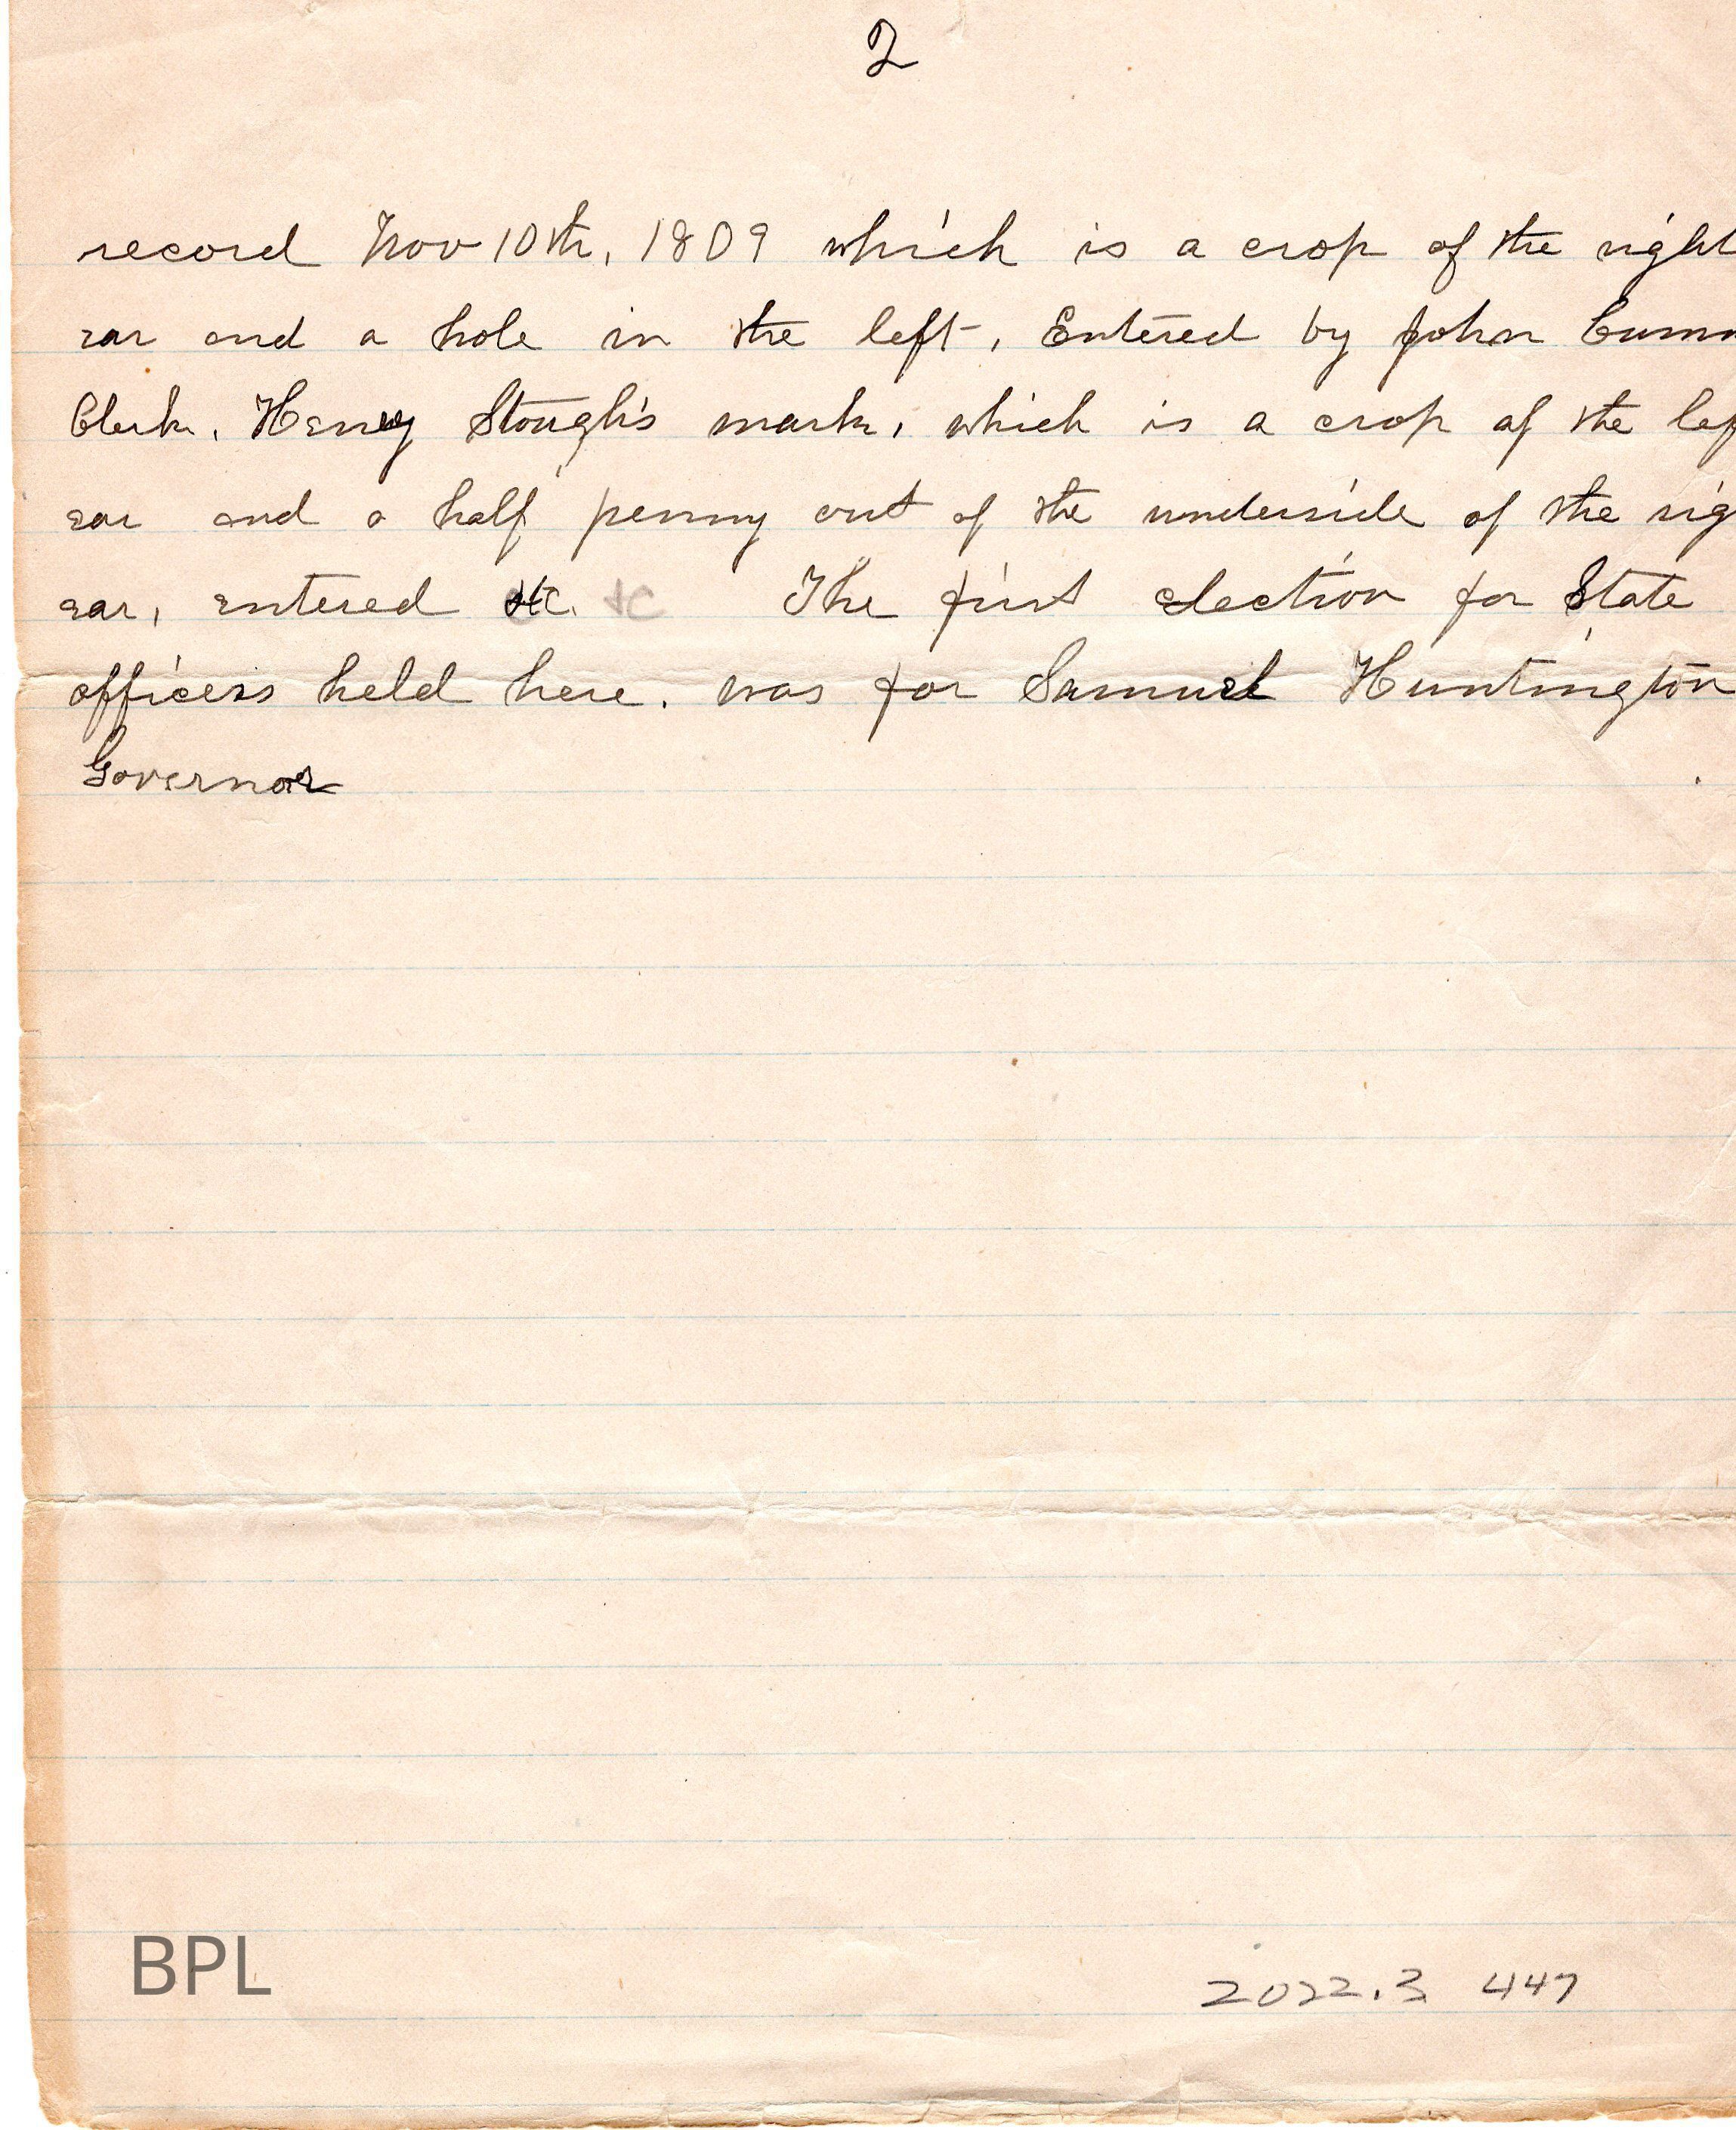 2
record Nov 10th, 1809 which is a crop of the right
ear and a hole in the left, Entered by John Cumm
Clerk, Henry Stough's mark, which is a crop of the lef
ear and a half penny out of the underside of the rig
ear, entered &c. &c The first election for State
officers held here. was for Samuel Huntington
Governor
BPL
2022.3 447